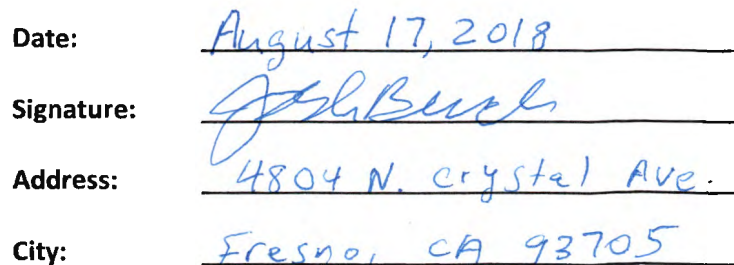 Date: August 17, 2018
Signature: Josh
Address: 4804 N. crystal Ave.
City: Fresno, CA 93705